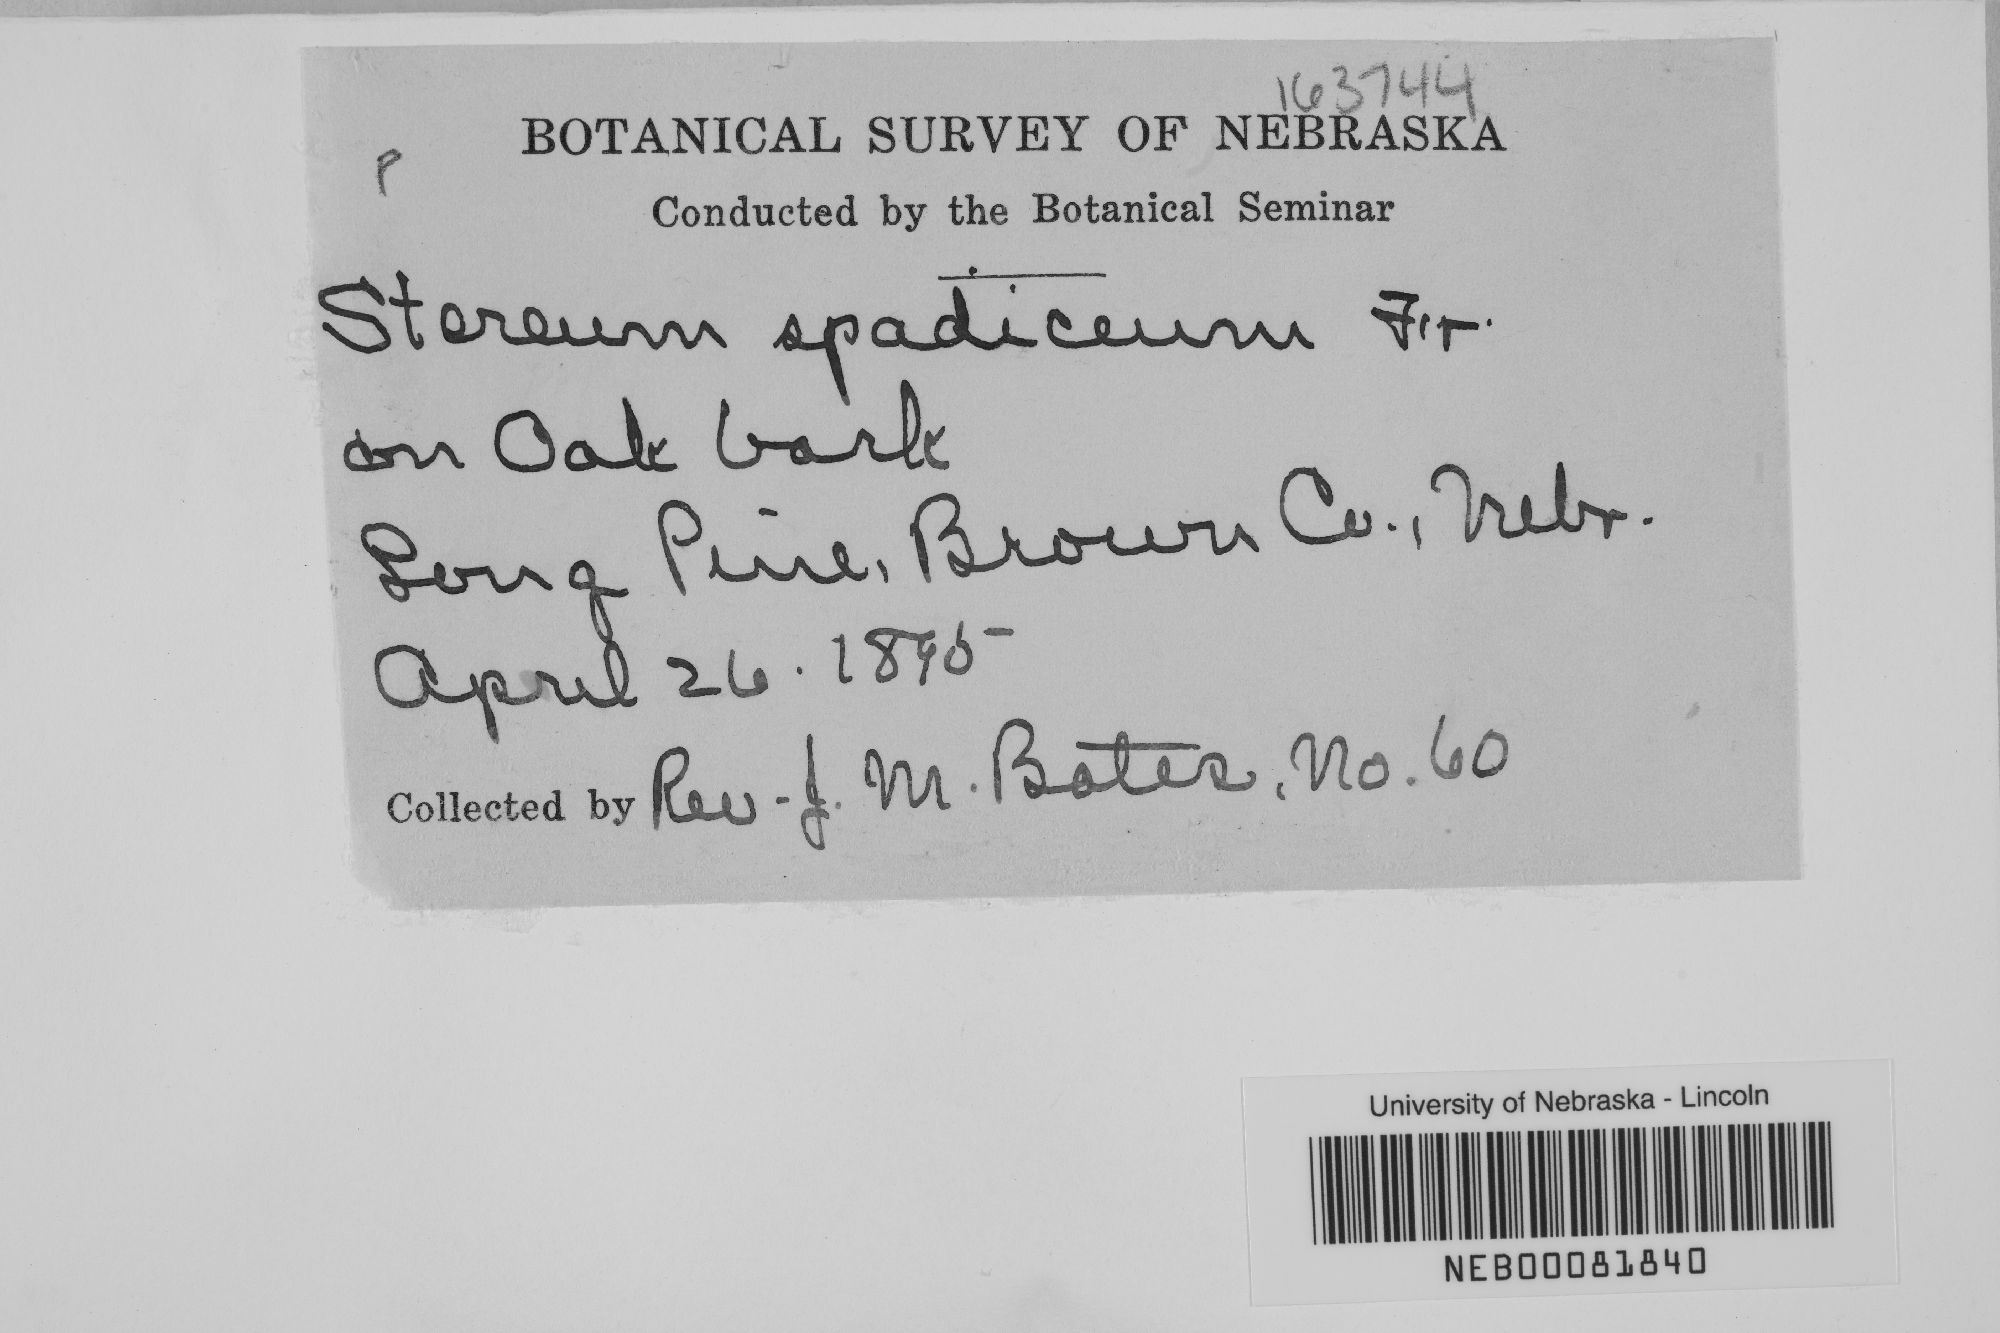 163744
BOTANICAL SURVEY OF NEBRASKA
P
Conducted by the Botanical Seminar
Stereum spadiceum Fr.
on Oak bark
Long Pine, Brown Co., Nebr.
April 26. 1895
Collected by Rev. J. M. Bates, No. 60
University of Nebraska - Lincoln
NEB00081840